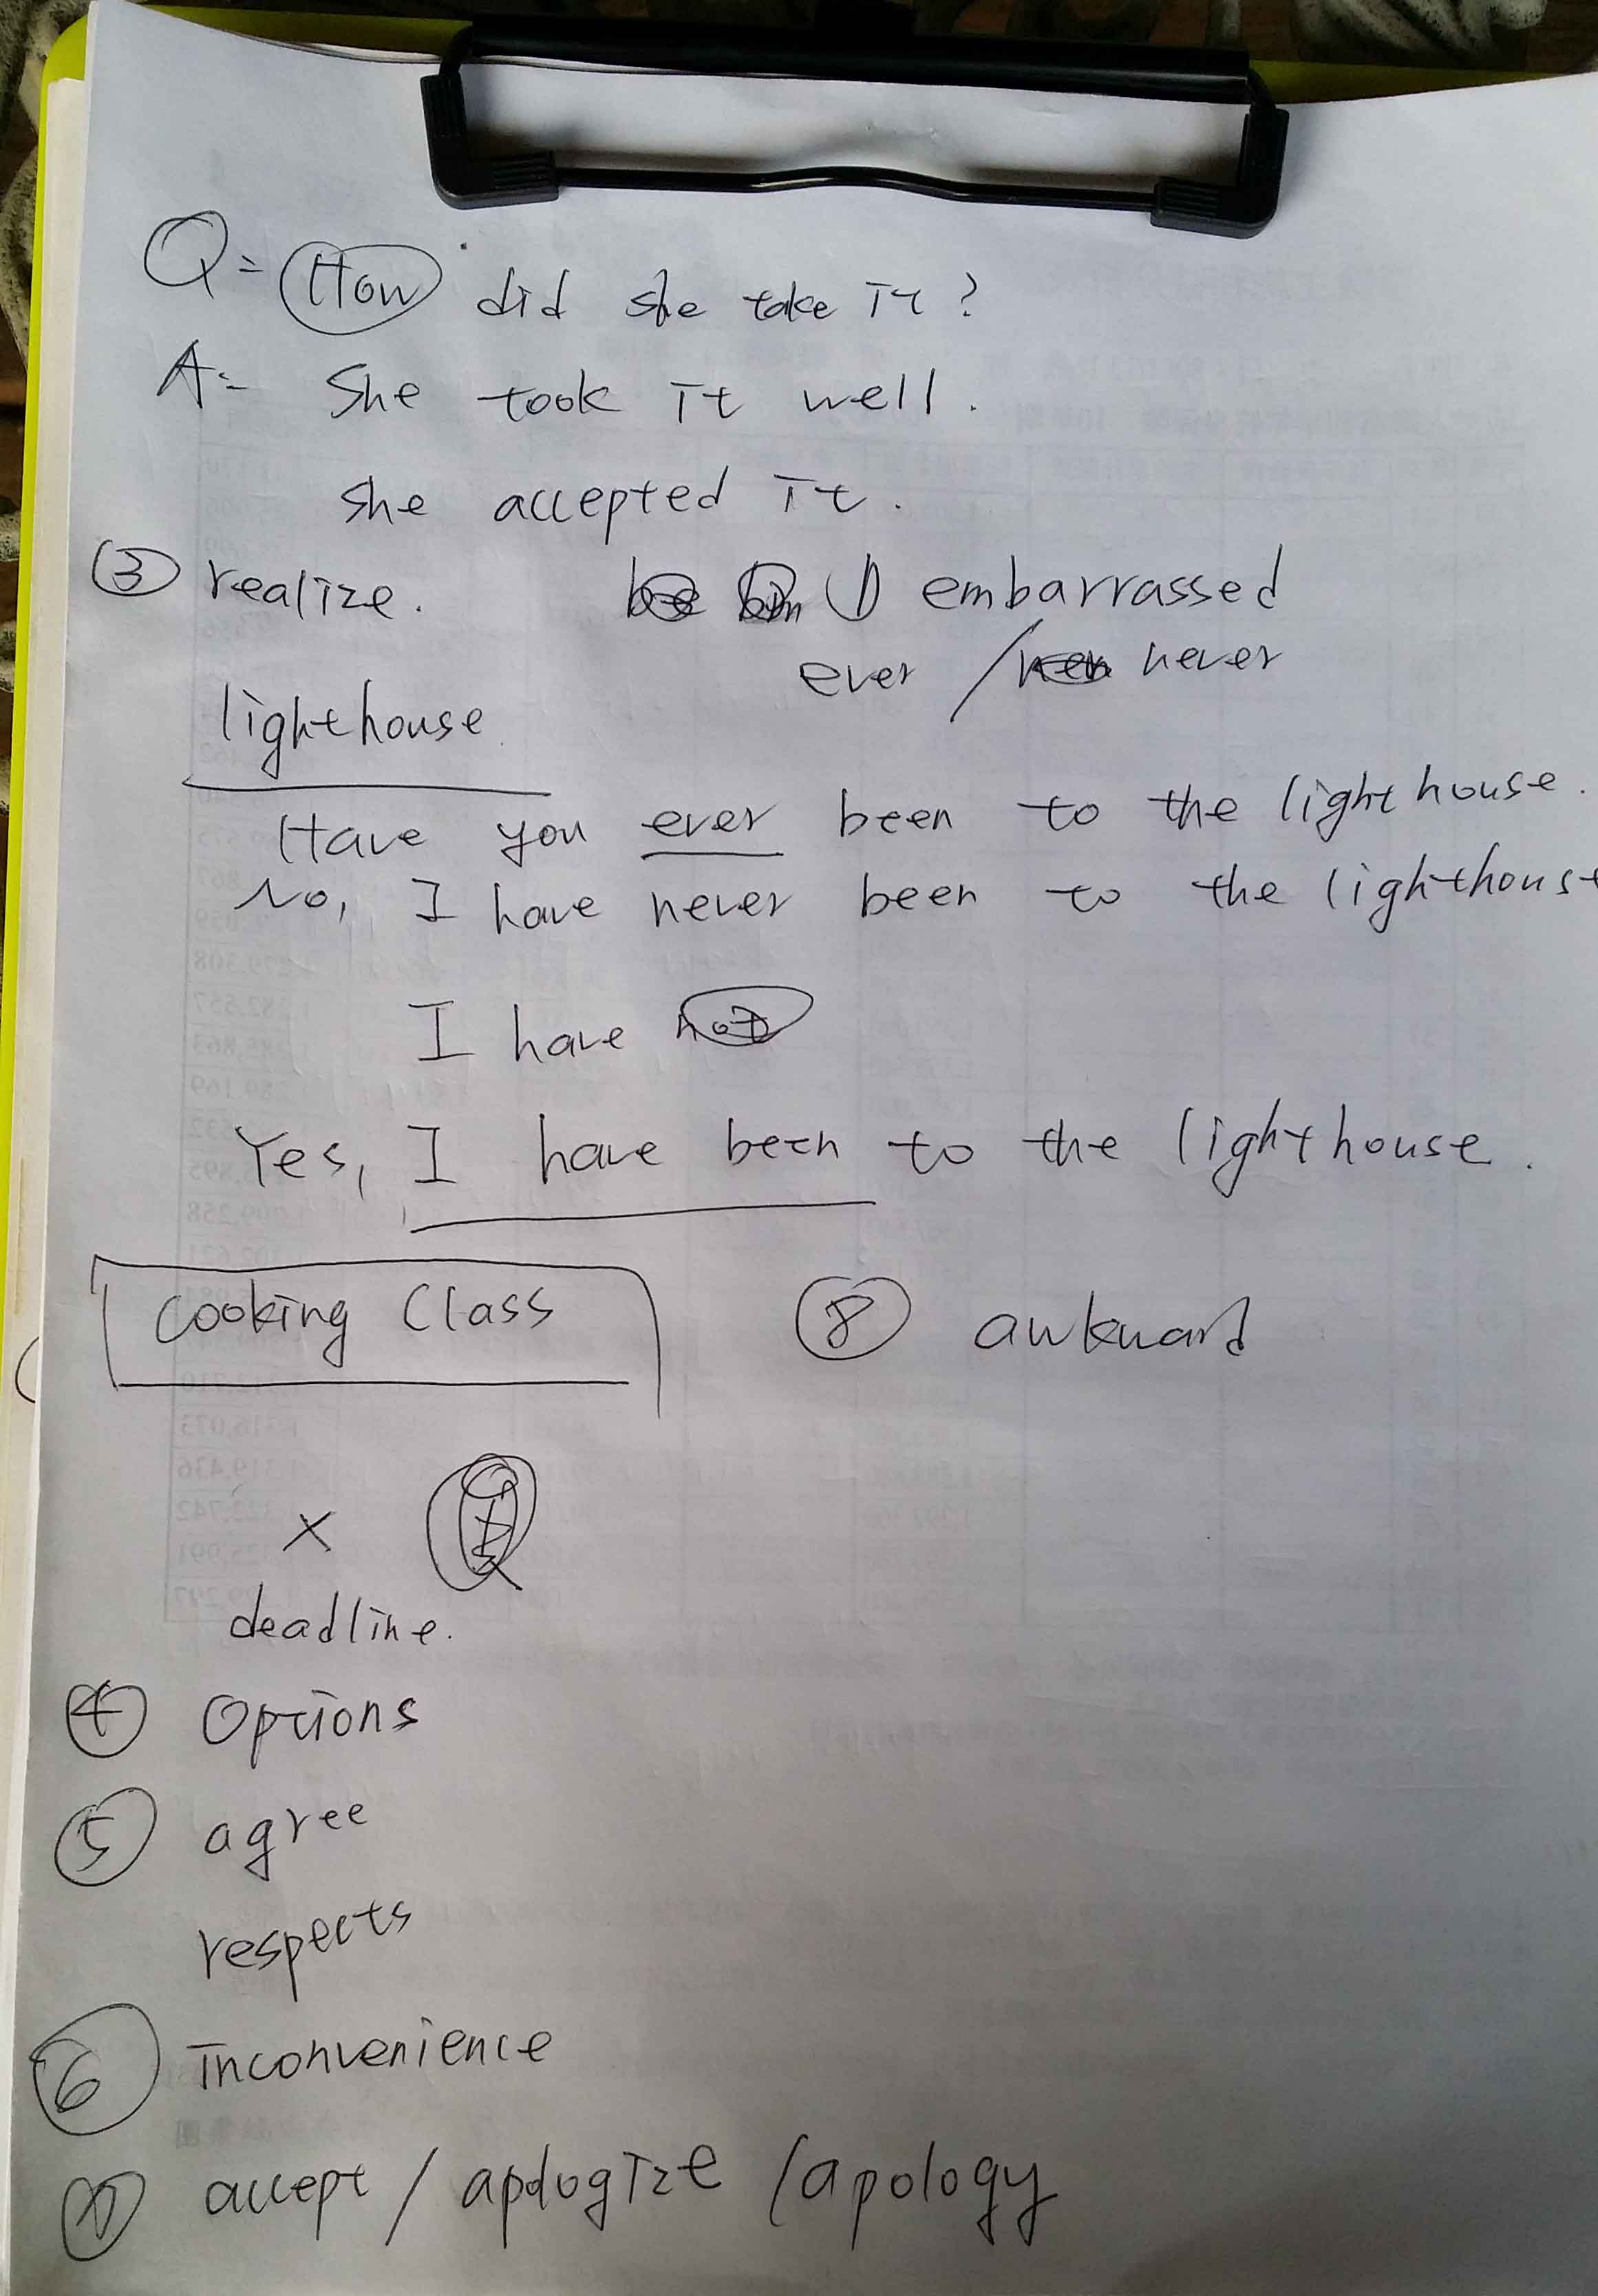 Q= How did she take it?
A= She took it well.
she accepted it.
③ realize. ① embarrassed
ever / never
lighthouse
Have you ever been to the lighthouse.
No, I have never been to the lighthouse
I have not
Yes, I have been to the lighthouse.
Cooking Class ⑧ awkward
×
deadline.
④ Options
⑤ agree
respects
⑥ inconvenience
⑦ accept / apologize / apology